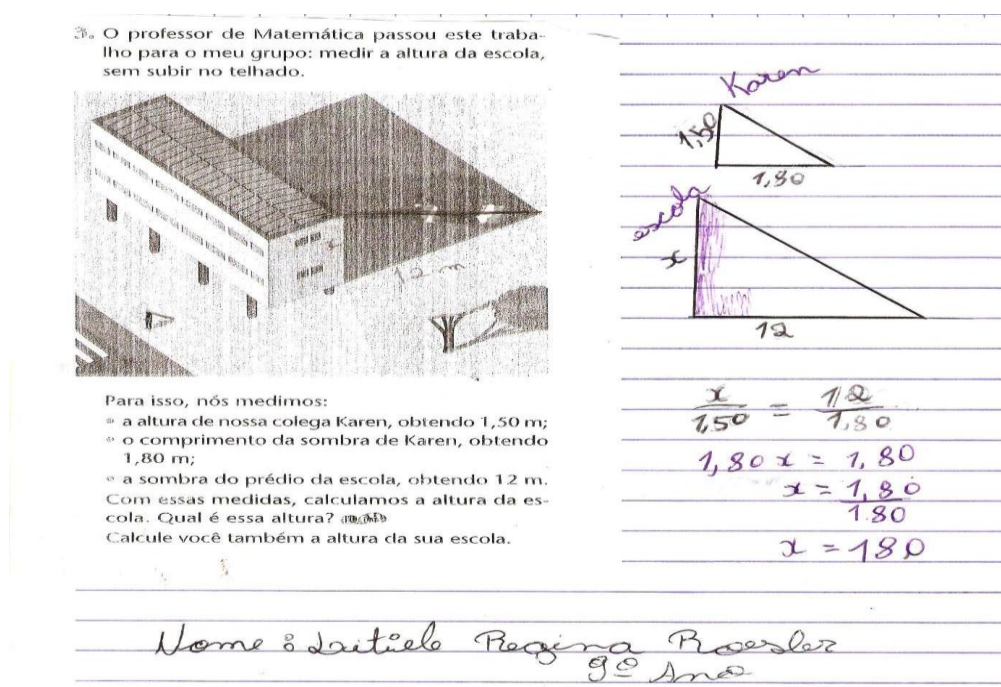 3. O professor de Matemática passou este traba-
lho para o meu grupo: medir a altura da escola,
sem subir no telhado.
12 m
Para isso, nós medimos:
• a altura de nossa colega Karen, obtendo 1,50 m;
• o comprimento da sombra de Karen, obtendo
1,80 m;
• a sombra do prédio da escola, obtendo 12 m.
Com essas medidas, calculamos a altura da es-
cola. Qual é essa altura?
Calcule você também a altura da sua escola.
Karen
1,50
1,80
escola
x
12
x/1,50 = 12/1,80
1,80 x = 1,80
x = 1,80/1.80
x = 180
Nome: Regina Roesler
9º Ano